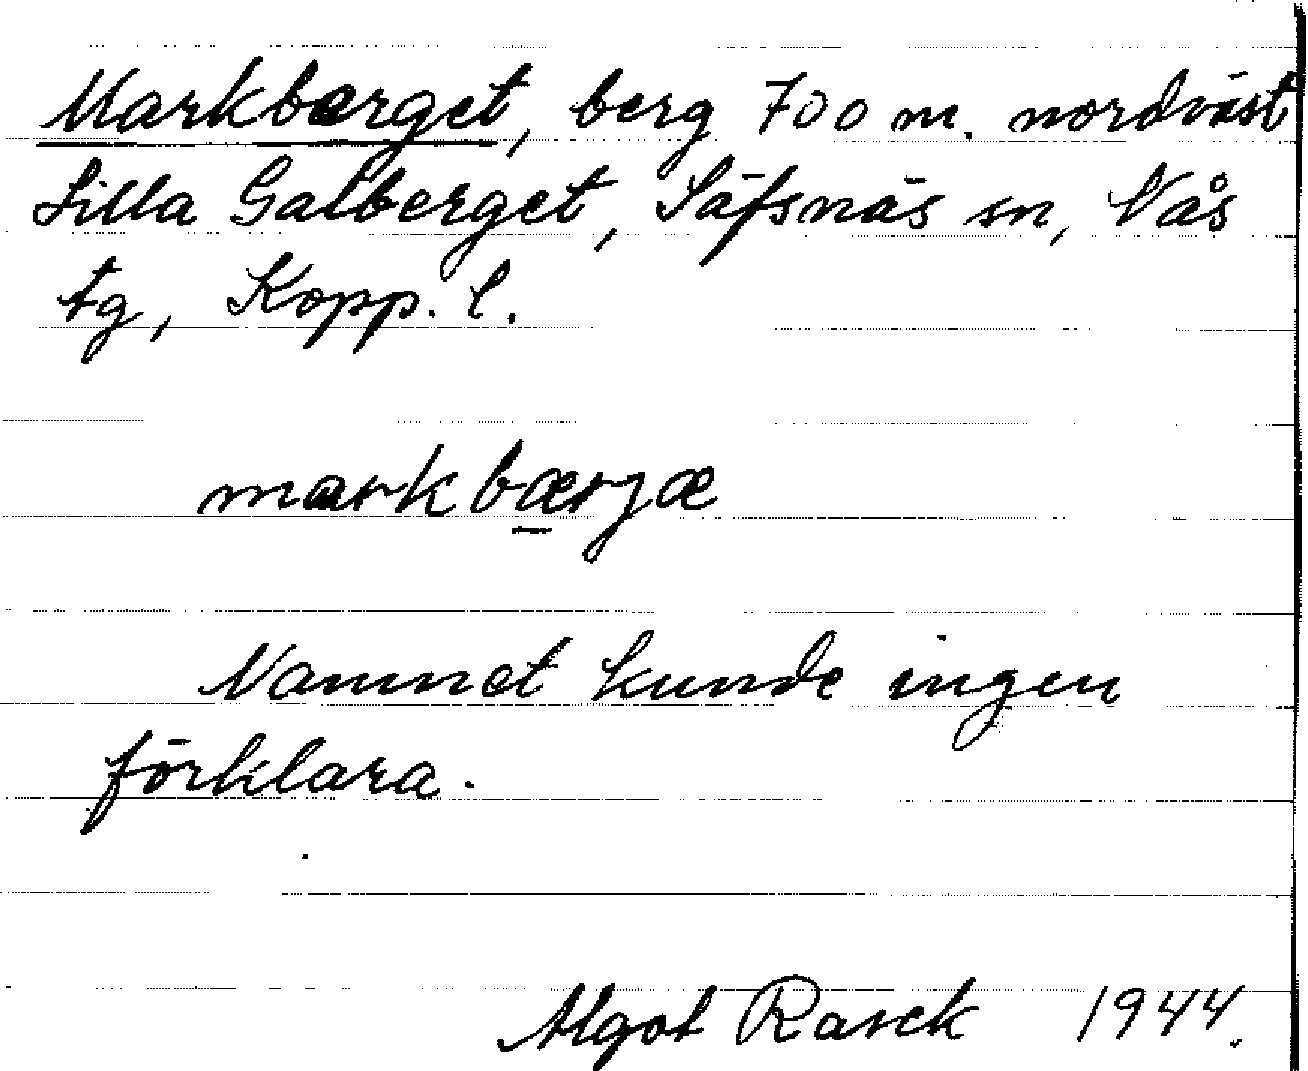 Markberget, berg 700 m. nordväst
Lilla Galberget, Säfsnäs sn, Nås
tg, Kopp. l.
markbærjæ
Namnet kunde ingen
förklara.
Algot Rasck 1944.